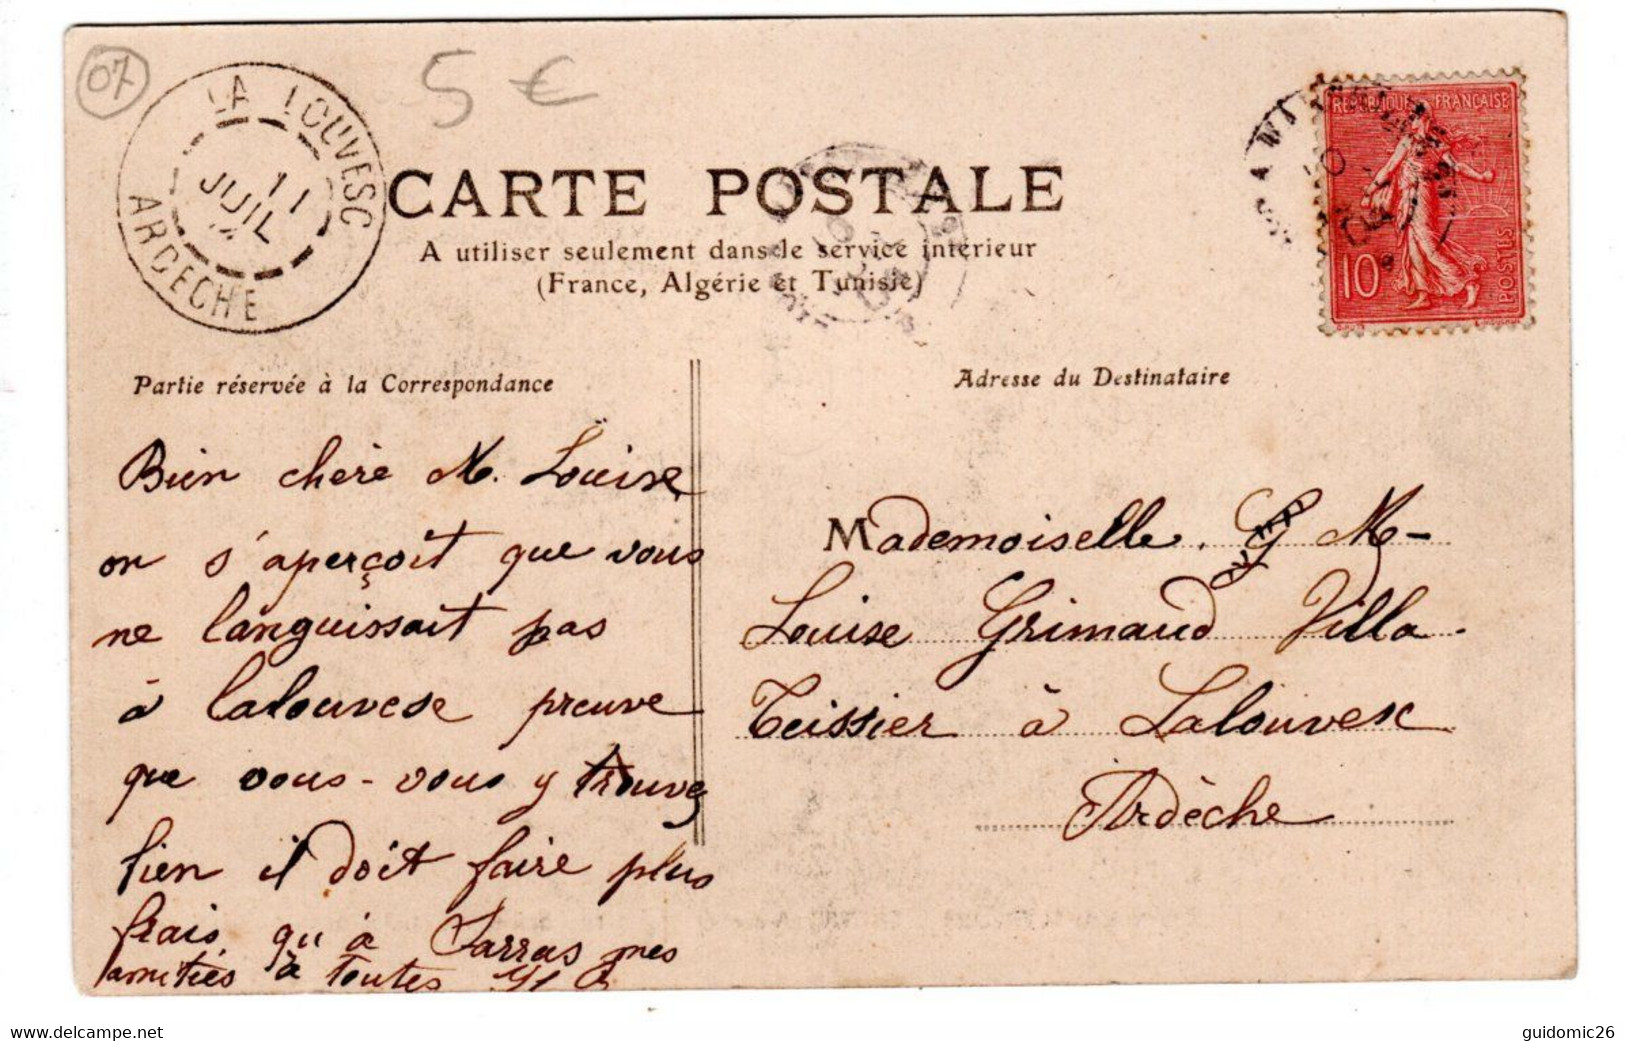 07
5 €
LA LOUVESC
11
JUIL
ARDECHE
REPUBLIQUE FRANÇAISE
10
POSTES
CARTE POSTALE
A utiliser seulement dans le service intérieur
(France, Algérie et Tunisie)
Partie réservée à la Correspondance
Bien chère M. Louise
on s'aperçoit que vous
ne languissait pas
à lalouvesc preuve
que vous-vous y trouvez
bien il doit faire plus
frais qu'à Sarras mes
amitiés à toutes
Adresse du Destinataire
Mademoiselle. G M-
Louise Grimaud Villa
Teissier à Lalouvesc
Ardèche
www.delcampe.net
guidomic26